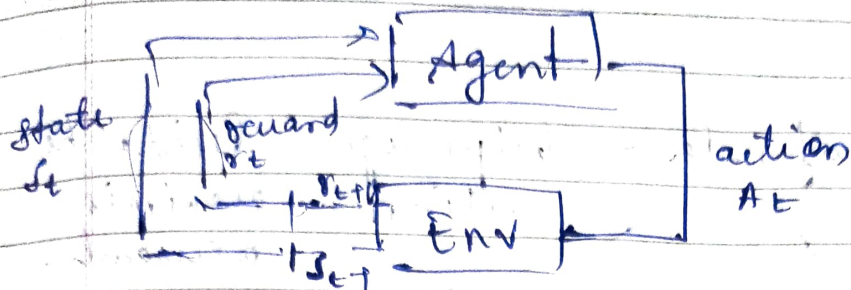 Agent
state
St
reward
rt
action
At
rt+1
Env
St+1